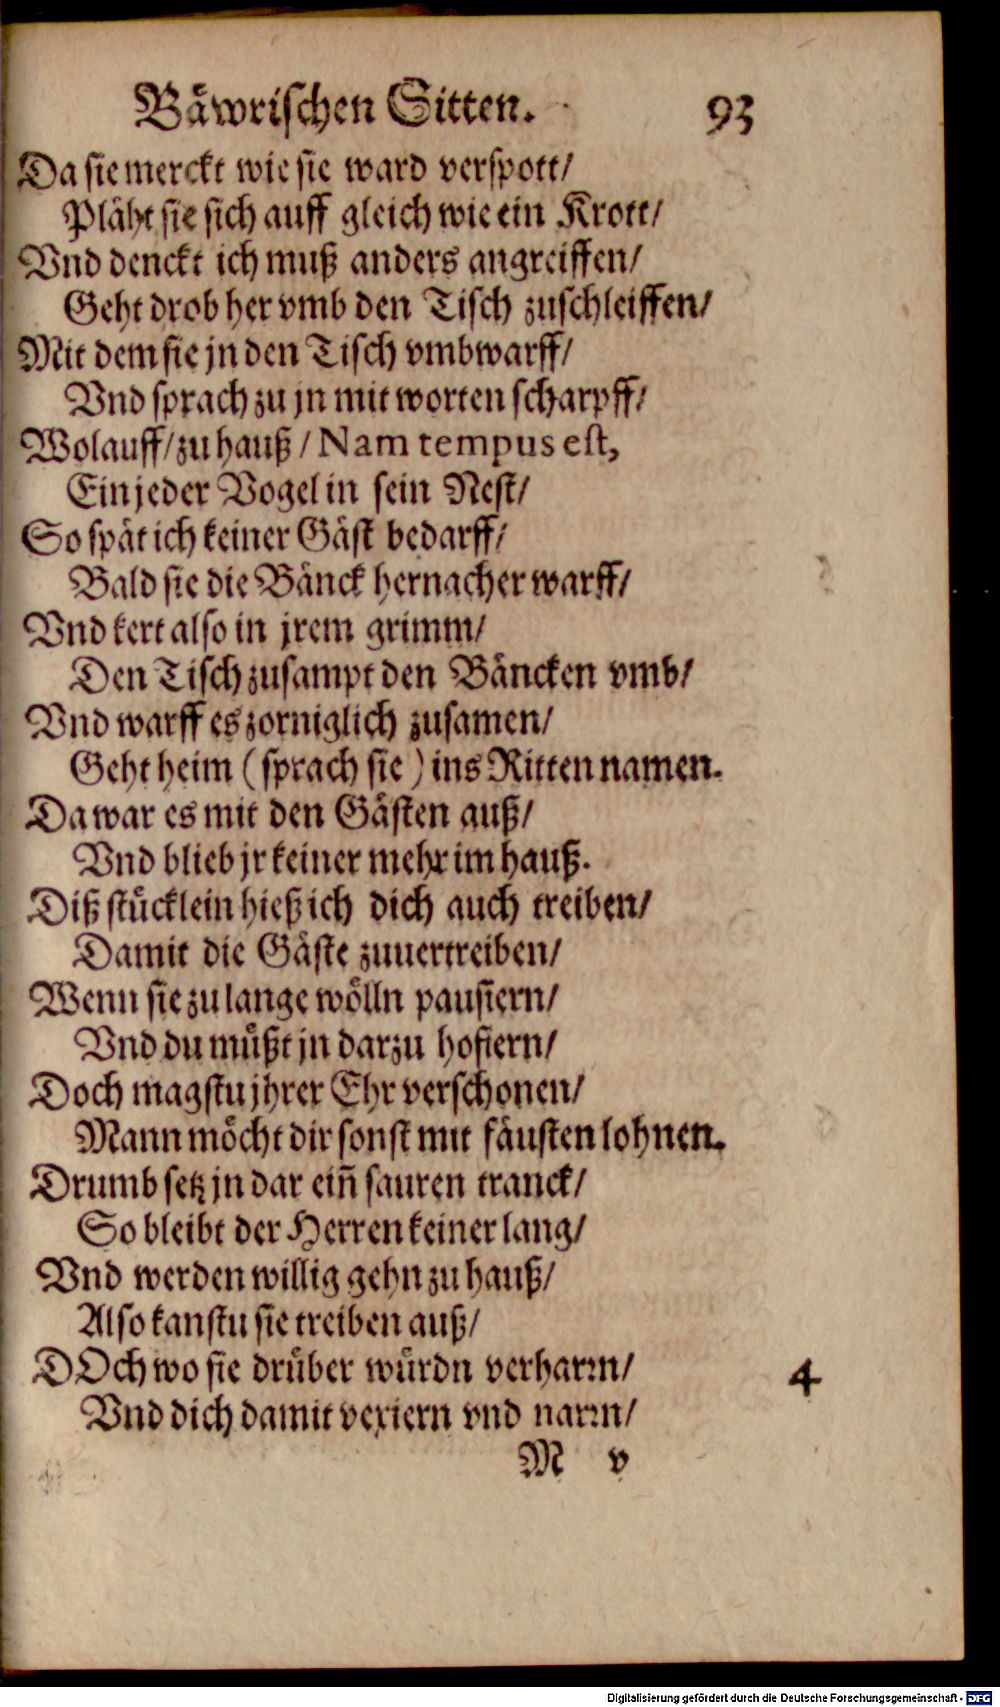 Bäwrischen Sitten. 93
Da sie merckt wie sie ward verspott/
Pläht sie sich auff gleich wie ein Krott/
Vnd denckt ich muß anders angreiffen/
Geht drob her vmb den Tisch zuschleiffen/
Mit dem sie jn den Tisch vmbwarff/
Vnd sprach zu jn mit worten scharpff/
Wolauff/ zu hauß / Nam tempus est,
Ein jeder Vogel in sein Nest/
So spät ich keiner Gäst bedarff/
Bald sie die Bänck hernacher warff/
Vnd kert also in jrem grimm/
Den Tisch zusampt den Bäncken vmb/
Vnd warff es zorniglich zusamen/
Geht heim ( sprach sie ) ins Ritten namen.
Da war es mit den Gästen auß/
Vnd blieb jr keiner mehr im hauß.
Diß stücklein hieß ich dich auch treiben/
Damit die Gäste zuuertreiben/
Wenn sie zu lange wölln pausiern/
Vnd du müßt jn darzu hofiern/
Doch magstu jhrer Ehr verschonen/
Mann möcht dir sonst mit fäusten lohnen.
Drumb setz jn dar eiñ sauren tranck/
So bleibt der Herren keiner lang/
Vnd werden willig gehn zu hauß/
Also kanstu sie treiben auß/
DOch wo sie drüber würdn verharrn/ 4
Vnd dich damit vexiern vnd narrn/
M v
Digitalisierung gefördert durch die Deutsche Forschungsgemeinschaft - DFG